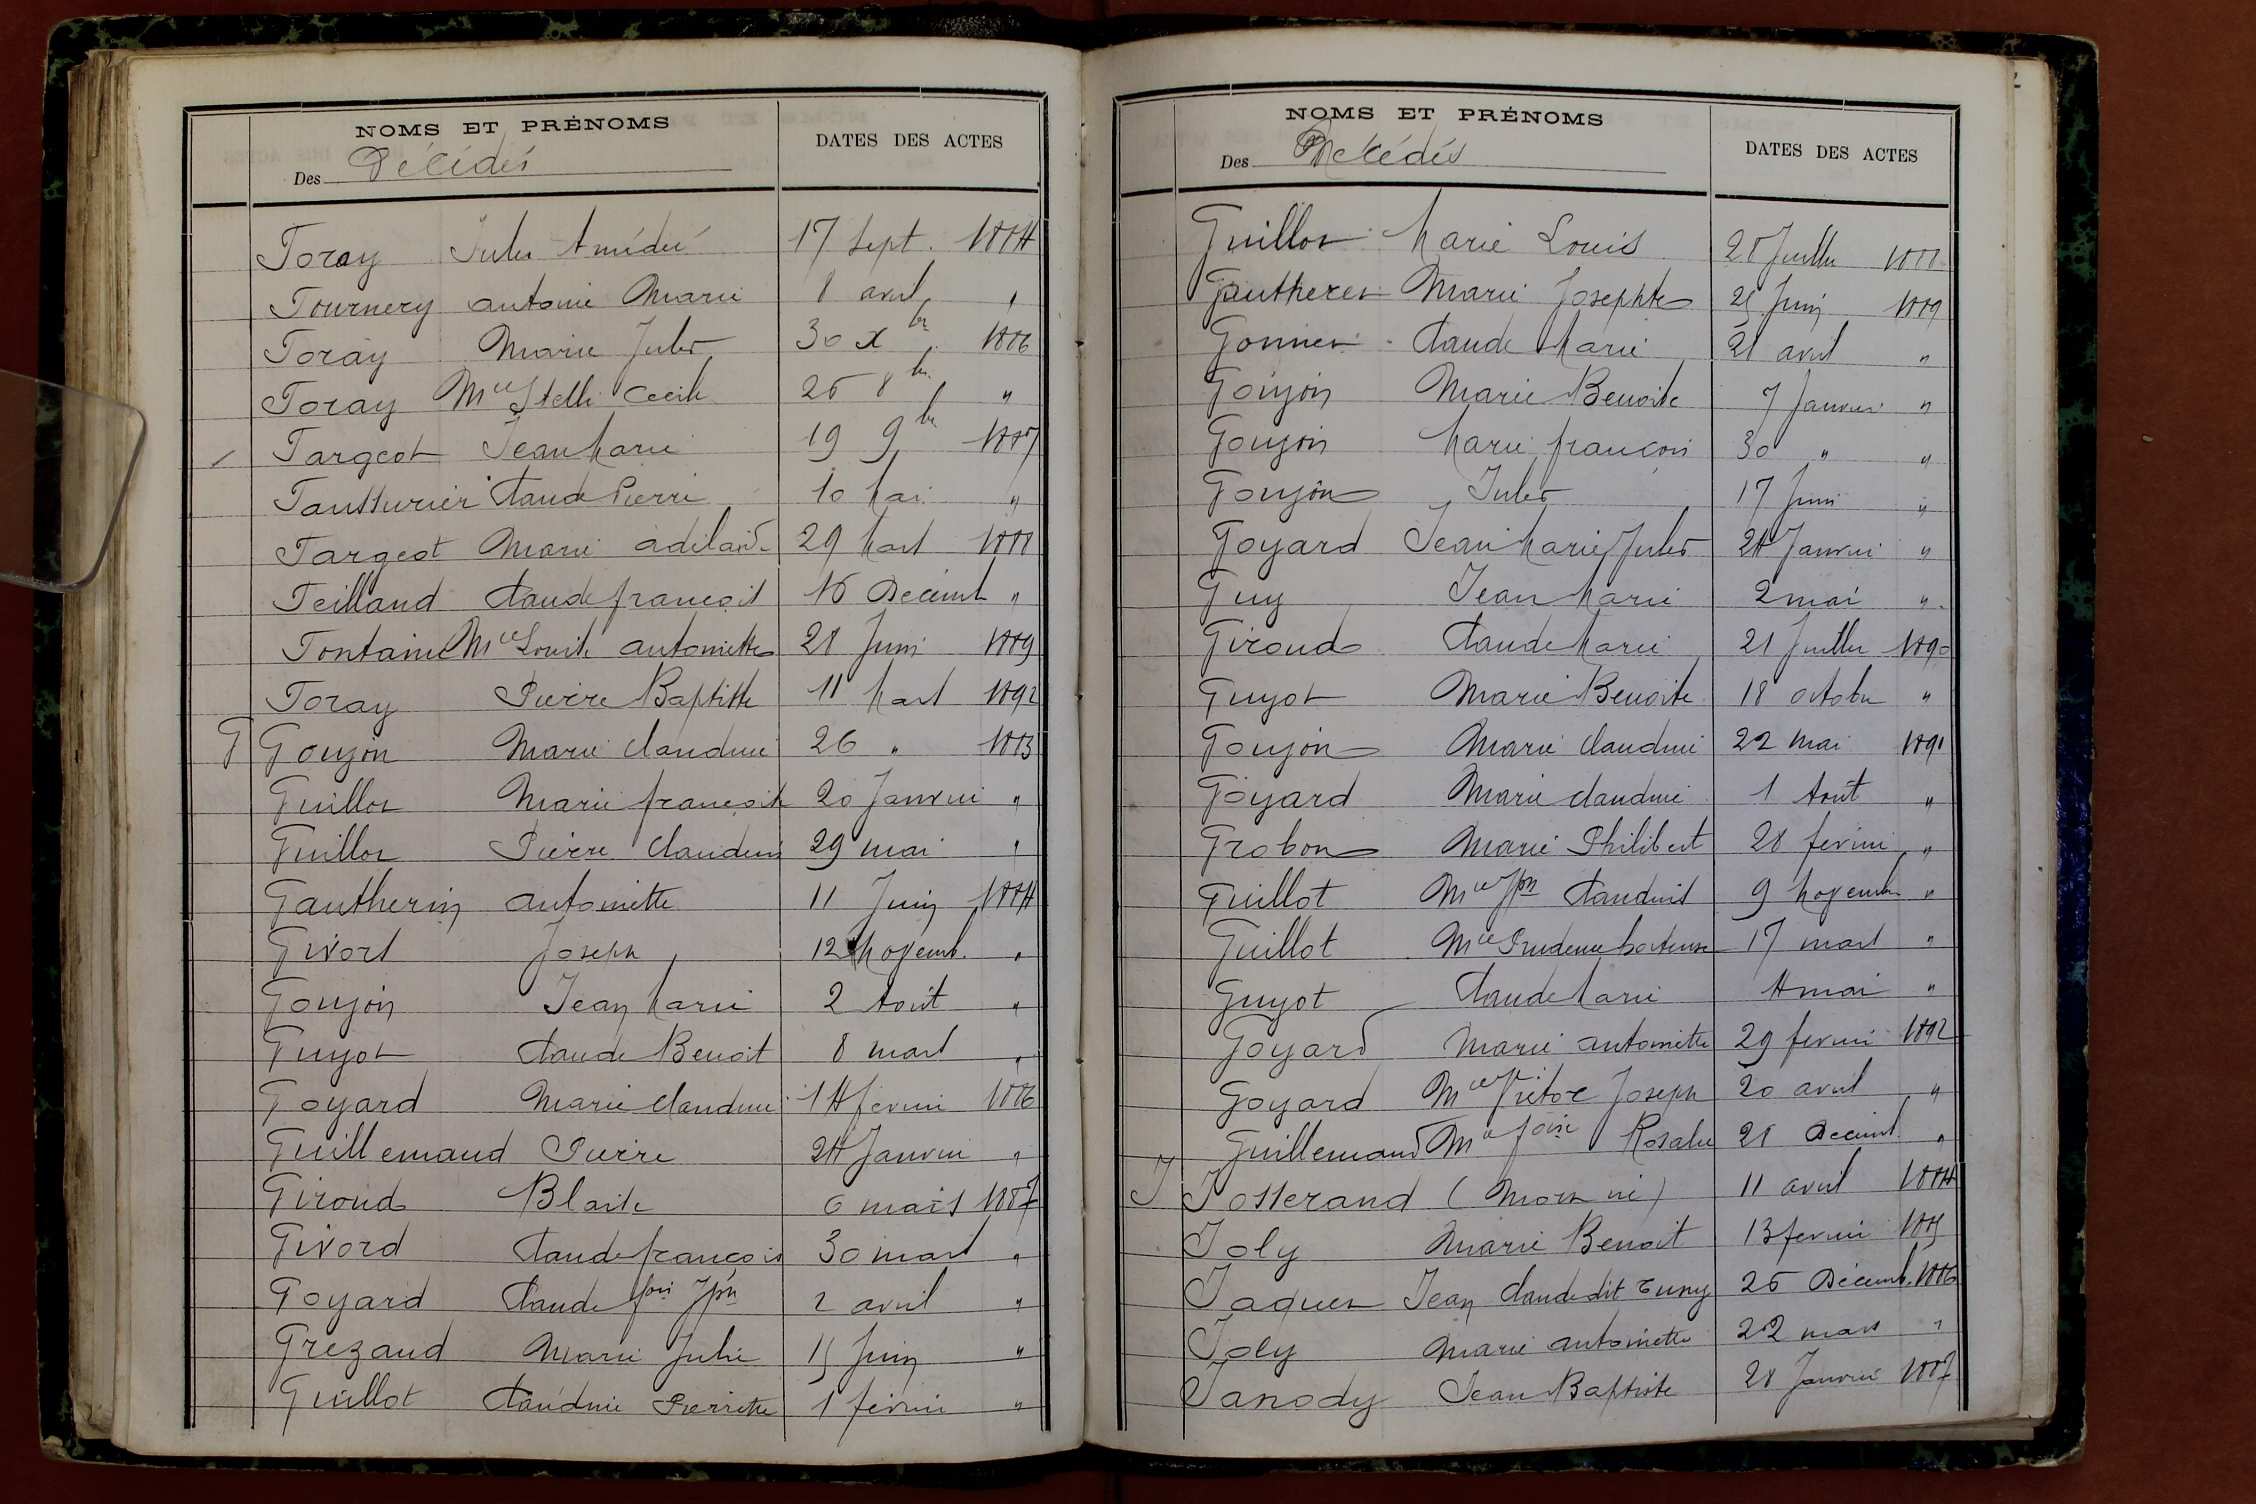 NOMS ET PRÉNOMS
Des Décédés
DATES DES ACTES
Foray Jules Amédée 17 Sept. 1884
Fournery antoine Marie 8 avril "
Foray Marie Jules 30 Xbre 1886
Foray Mie Stelle Cecile 26 8bre "
Fargeot Jean Marie 19 9bre 1887
Fausturier Claude Pierre 10 Mai "
Fargeot Marie adelaïde 29 Mars 1888
Feilland Claude françois 16 Décemb "
Fontaine Mie Louise antoinette 28 Juin 1889
Foray Pierre Baptiste 11 Mars 1892
G Goujon Marie Claudine 26 " 1883
Guillot Marie françoise 20 Janvier "
Guillot Pierre Claudius 29 mai "
Gautherin antoinette 11 Juin 1884
Givort Joseph 12 Novemb. "
Goujon Jean Marie 2 Août "
Guyot Claude Benoit 8 mars "
Goyard Marie Claudine 14 fevrier 1886
Guillemaud Pierre 24 Janvier "
Giroud Blaise 6 mars 1887
Givord Claude françois 30 mars "
Goyard Claude fois Jph 2 avril "
Grezaud Marie Julie 15 Juin "
Guillot Claudine Pierrette 1 février "
NOMS ET PRÉNOMS
Des Décédés
DATES DES ACTES
Guillot Marie Louis 28 Juillet 1888
Gautheret Marie Josephte 25 Juin 1889
Gonnet Claude Marie 21 avril "
Goujon Marie Benoite 7 Janvier "
Goujon Marie françois 30 " "
Goujon Jules 17 Juin "
Goyard Jean Marie Jules 24 Janvier "
Guy Jean Marie 2 mai "
Giroud Claude Marie 21 Juillet 1890
Guyot Marie Benoite 18 octobre "
Goujon Marie Claudine 22 mai 1891
Goyard Marie Claudine 1 Août "
Grobon Marie Philibert 28 fevrier "
Guillot Mie Jph Claudius 9 Novembre "
Guillot Mie Prudence hortense 17 mars "
Guyot Claude Marie 4 mai "
Goyard Marie antoinette 29 fevrier 1892
Goyard Mie Victor Joseph 20 avril "
Guillemaud Mie foise Rosalie 28 Décemb. "
J Josserand (Mort né) 11 avril 1884
Joly Marie Benoit 13 fevrier 1885
Jaquet Jean Claude dit 26 Décemb. 1886
Joly Marie antoinette 22 mars "
Janody Jean Baptiste 28 Janvier 1887